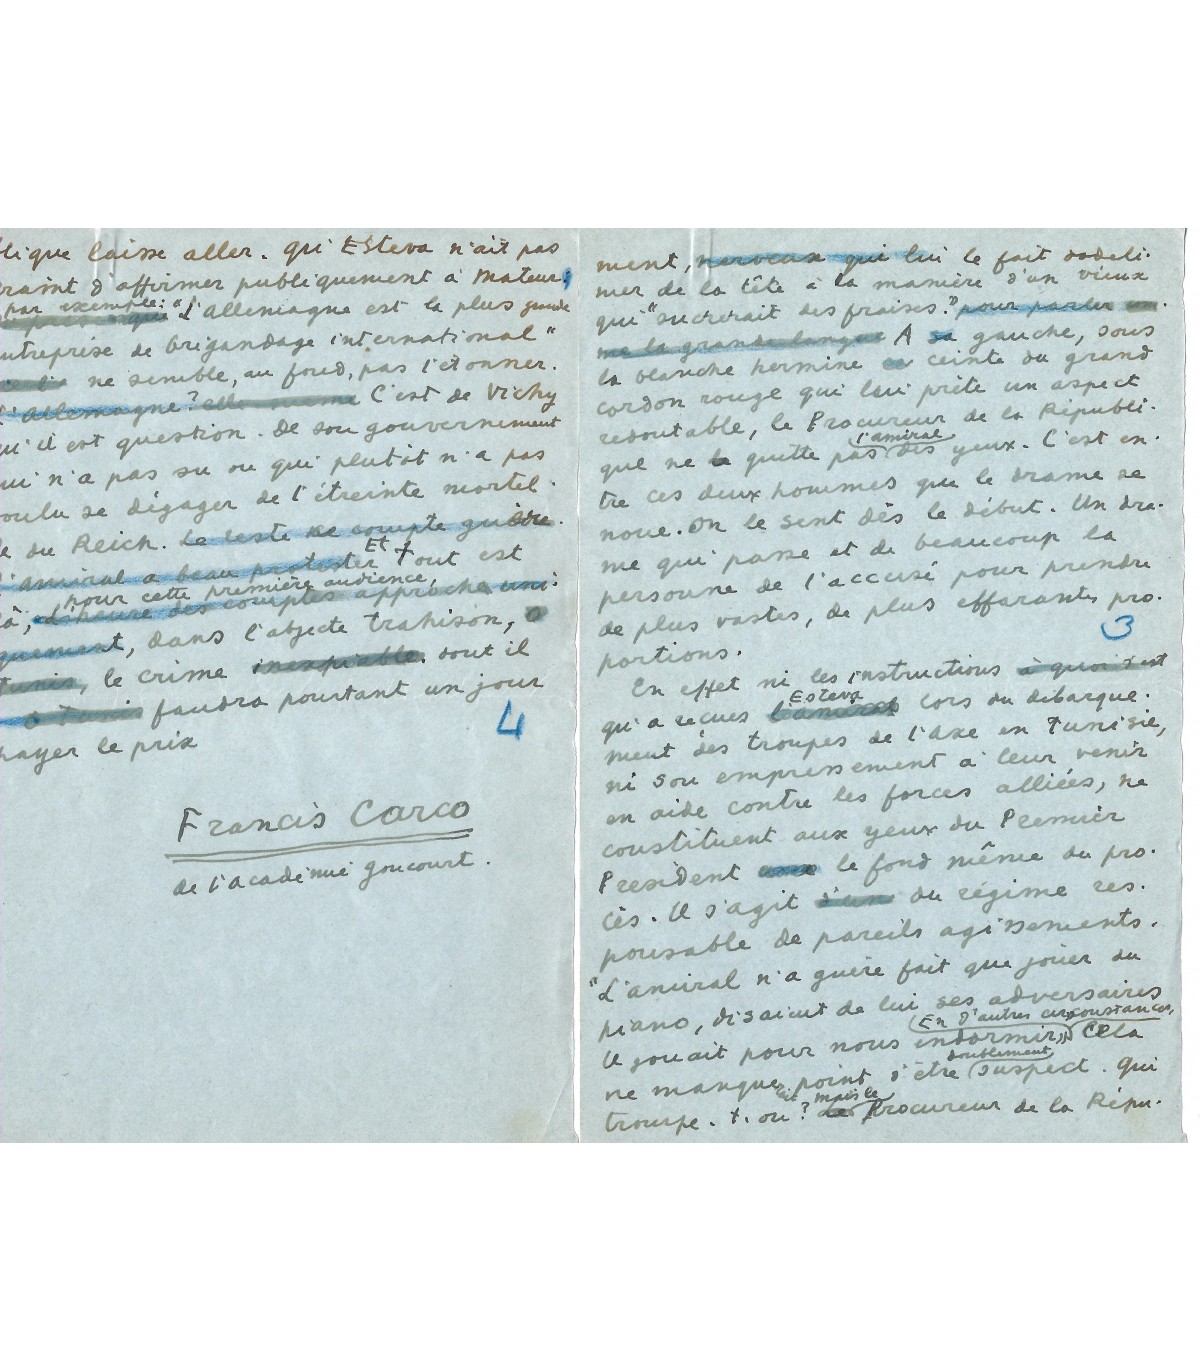 ment, nerveux qui lui le fait dodeli-
ner de la tête à la manière d'un vieux
qui "sucrerait des fraises". pour parler
la grande langue A sa gauche, sous
la blanche hermine ceinte du grand
cordon rouge qui lui prête un aspect
redoutable, le Procureur de la Républi-
l'amiral
que ne le quitte pas des yeux. C'est en-
tre ces deux hommes que le drame se
noue. On le sent dès le début. Un dra-
me qui passe et de beaucoup la
personne de l'accusé pour prendre
de plus vastes, de plus effarantes pro-
3
portions.
En effet ni les instructions à quoi
Esteva
qu'a reçues l'amiral lors du débarque-
ment des troupes de l'Axe en Tunisie,
ni son empressement à leur venir
en aide contre les forces alliées, ne
constituent aux yeux du Premier
Président le fond même du pro-
cès. Il s'agit d'un du régime res-
ponsable de pareils agissements.
"L'amiral n'a guère fait que jouer du
piano, disaient de lui ses adversaires
En d'autres circonstances,
Il jouait pour nous endormir." Cela
doublement
ne manquerait point d'être suspect. Qui
mais le
trompe-t-on? Le Procureur de la Répu-
blique laisse aller. Qu'Esteva n'ait pas
craint d'affirmer publiquement à Mateur,
par exemple: "L'Allemagne est la plus grande
entreprise de brigandage international"
ne semble, au fond, pas l'étonner.
L'Allemagne? elle même C'est de Vichy
qu'il est question. De son gouvernement
qui n'a pas su ou qui plutôt n'a pas
voulu se dégager de l'étreinte mortel-
le du Reich. Le reste ne compte guère.
L'amiral a beau protester Et tout est
pour cette première audience,
là, L'heure des comptes approche uni-
quement, dans l'abjecte trahison, à
Tunis, le crime inexpiable. dont il
à Tunis faudra pourtant un jour
4
payer le prix
Francis Carco
de l'académie goncourt.